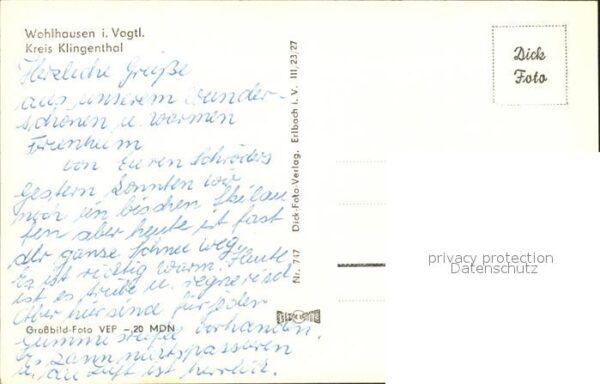 Wohlhausen i. Vogtl.
Kreis Klingenthal
Herzliche Grüße
aus unserem wunder-
schönen u. warmen
Ferienheim
von Euren Schröders
Gestern konnten wir
noch ein bischen Skilau-
fen aber heute ist fast
der ganze Schnee weg.
Es ist richtig warm. Heute
ist es trübe u. regnerisch
Aber hier sind für jeden
Gummistiefel vorhanden.
Es kann nichts passieren
u. die Luft ist herrlich.
Großbild-Foto VEP –,20 MDN
Nr. 747 Dick-Foto-Verlag, Erlbach i. V. III/23/27
Dick
Foto
privacy protection
Datenschutz